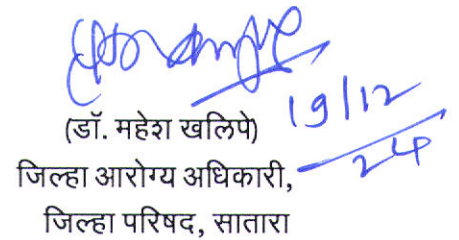 19/12
24
(डॉ. महेश खलिपे)
जिल्हा आरोग्य अधिकारी,
जिल्हा परिषद, सातारा